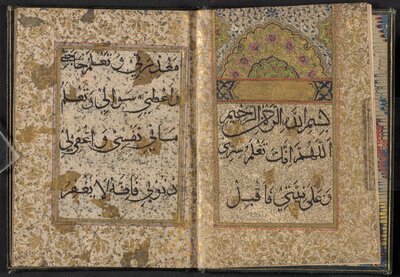 بسم الله الرحمن الرحيم
اللهم انك تعلم سري
وعلانيتي فاقبل
معذرتي وتعلم حاجتي
واعطني سوالي وتعلم
ما في نفسي واغفر لي
ذنوبي فانه لا يغفر